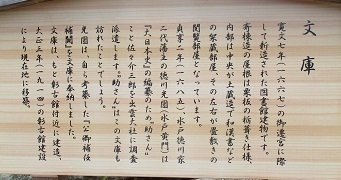 文庫
寛文七年(一六六七)の御遷宮に際
して新造された図書館建物です。
寄棟造の屋根は栗板の栃葺き仕様、
内部は中央が土蔵造で和漢書など
の架蔵部屋、その左右が畳敷きの
閲覧部屋となっています。
貞享二年(一六八五)、水戸徳川家
二代藩主の徳川光圀(水戸黄門)は
『大日本史』の編纂のため“助さん”
こと佐々介三郎を出雲大社に調査
派遣します。“助さん”はこの文庫も
訪れたことでしょう。
光圀は、自ら考纂した『公卿補任
補闕』を文庫に奉納しました。
文庫はもと彰古館付近に建築。
大正三年(一九一四)の彰古館建設
により現在地に移築。